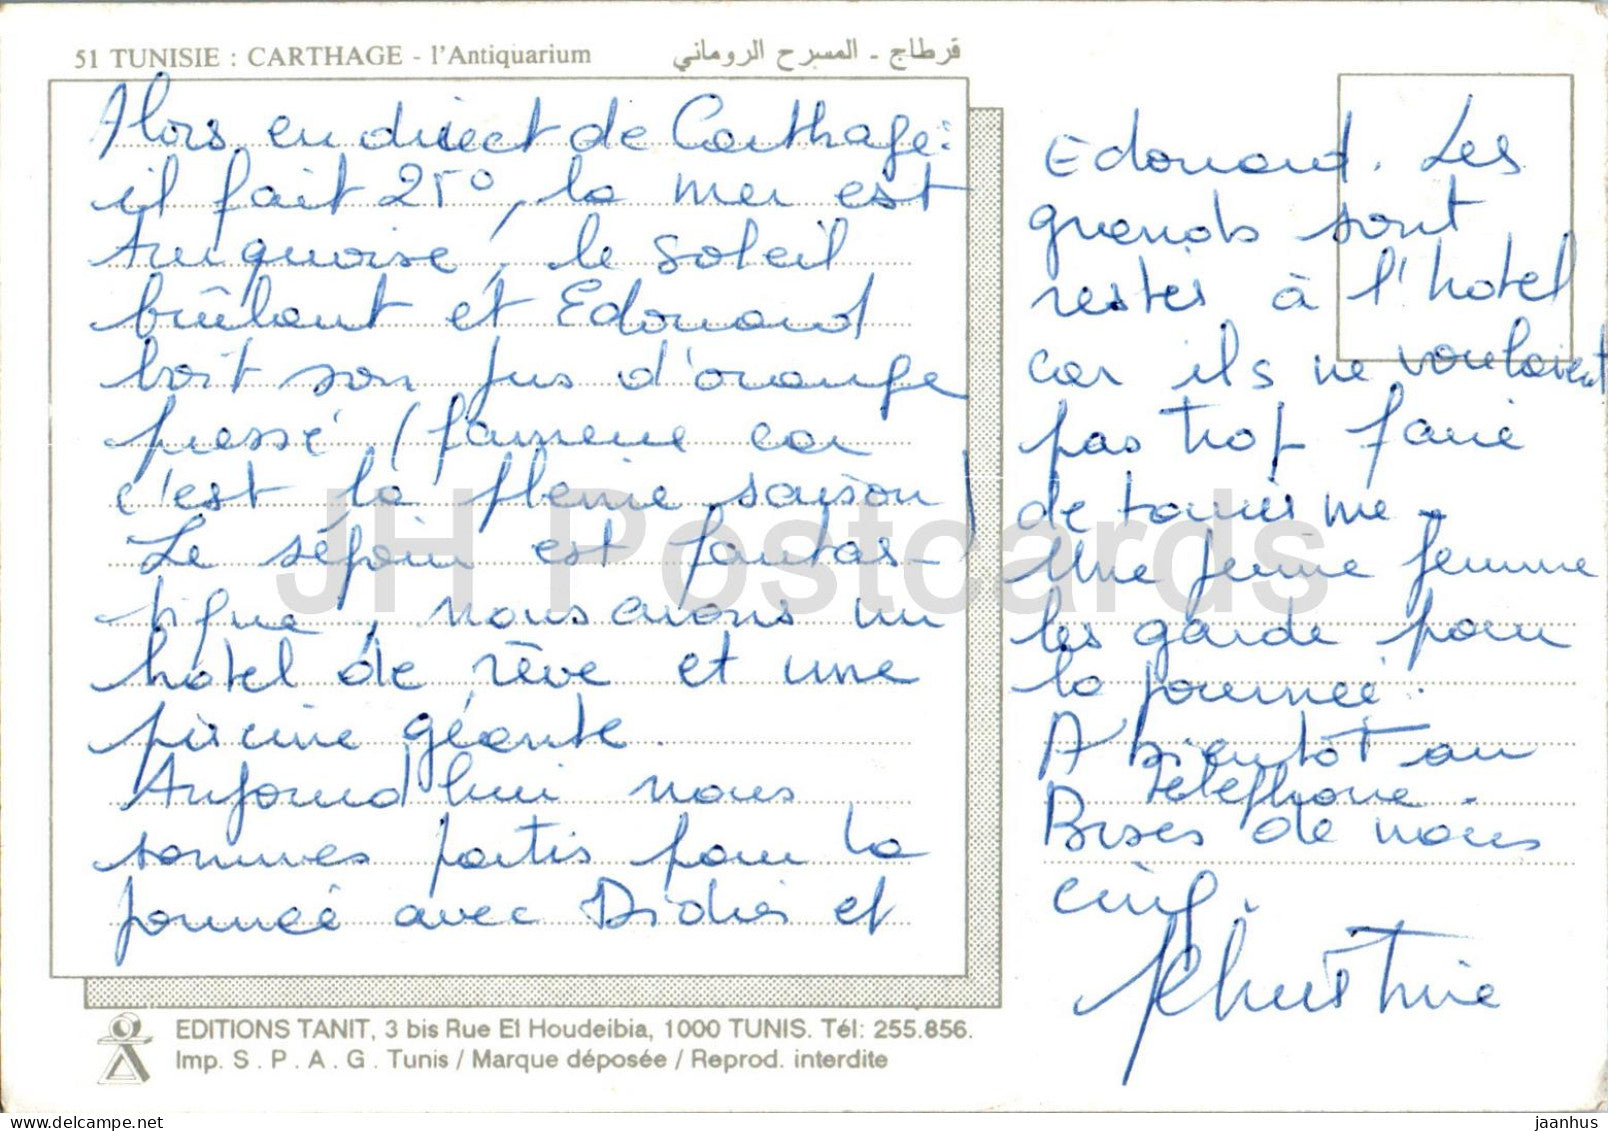 51 TUNISIE : CARTHAGE - l'Antiquarium
قرطاج - المسرح الروماني
Alors, en direct de Carthage :
il fait 25°, la mer est
turquoise, le soleil
brûlant et Edouard
boit son jus d'orange
pressé, (fameux car
c'est la pleine saison)
Le séjour est fantas-
tique, nous avons un
hotel de rêve et une
piscine géante.
Aujourd'hui nous
sommes partis pour la
journée avec Didier et
Edouard. Les
grands sont
restés à l'hotel
car ils ne voulaient
pas trop faire
de tourisme -
Une jeune femme
les garde pour
la journée.
A bientôt au
téléphone.
Bises de nous
cinq.
Christine
EDITIONS TANIT, 3 bis Rue El Houdeibia, 1000 TUNIS. Tél: 255.856.
Imp. S . P . A . G . Tunis / Marque déposée / Reprod. interdite
JH Postcards
jaanhus